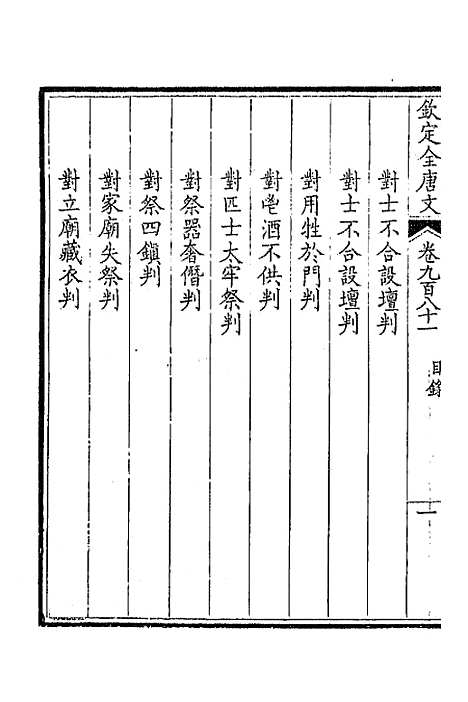 欽定全唐文 卷九百八十一 目錄 一
對士不合設壇判
對士不合設壇判
對用牲於門判
對鬯酒不供判
對匹士太牢祭判
對祭器奢僭判
對祭四鎮判
對家廟失祭判
對立廟藏衣判